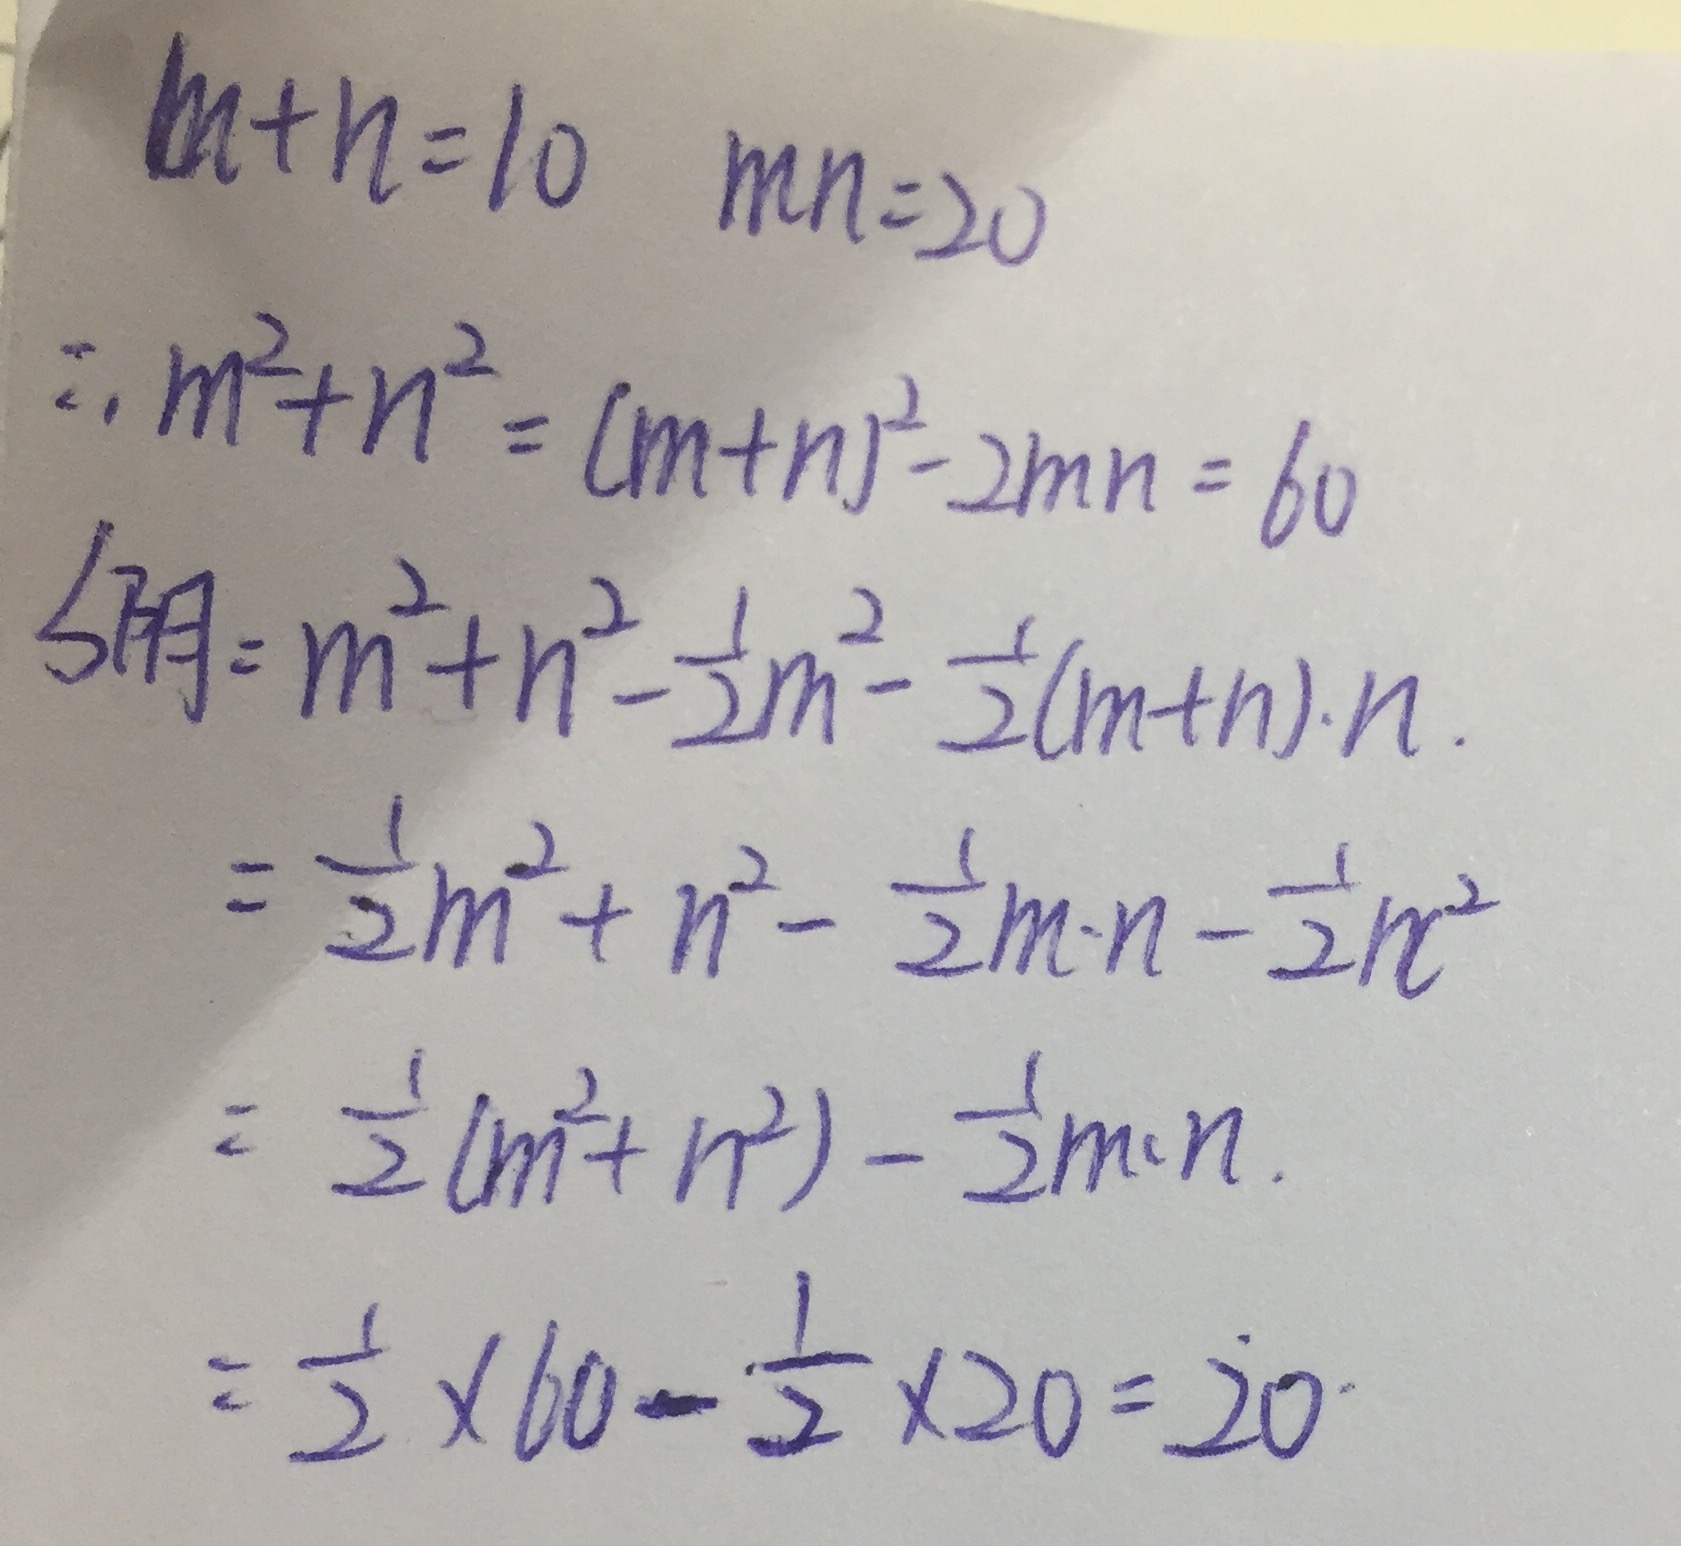 m+n=10 mn=20
∴ m²+n²=(m+n)²-2mn=60
S阴=m²+n²-\frac{1}{2}m²-\frac{1}{2}(m+n)·n.
=\frac{1}{2}m²+n²-\frac{1}{2}m·n-\frac{1}{2}n²
=\frac{1}{2}(m²+n²)-\frac{1}{2}m·n.
=\frac{1}{2}×60-\frac{1}{2}×20=20.